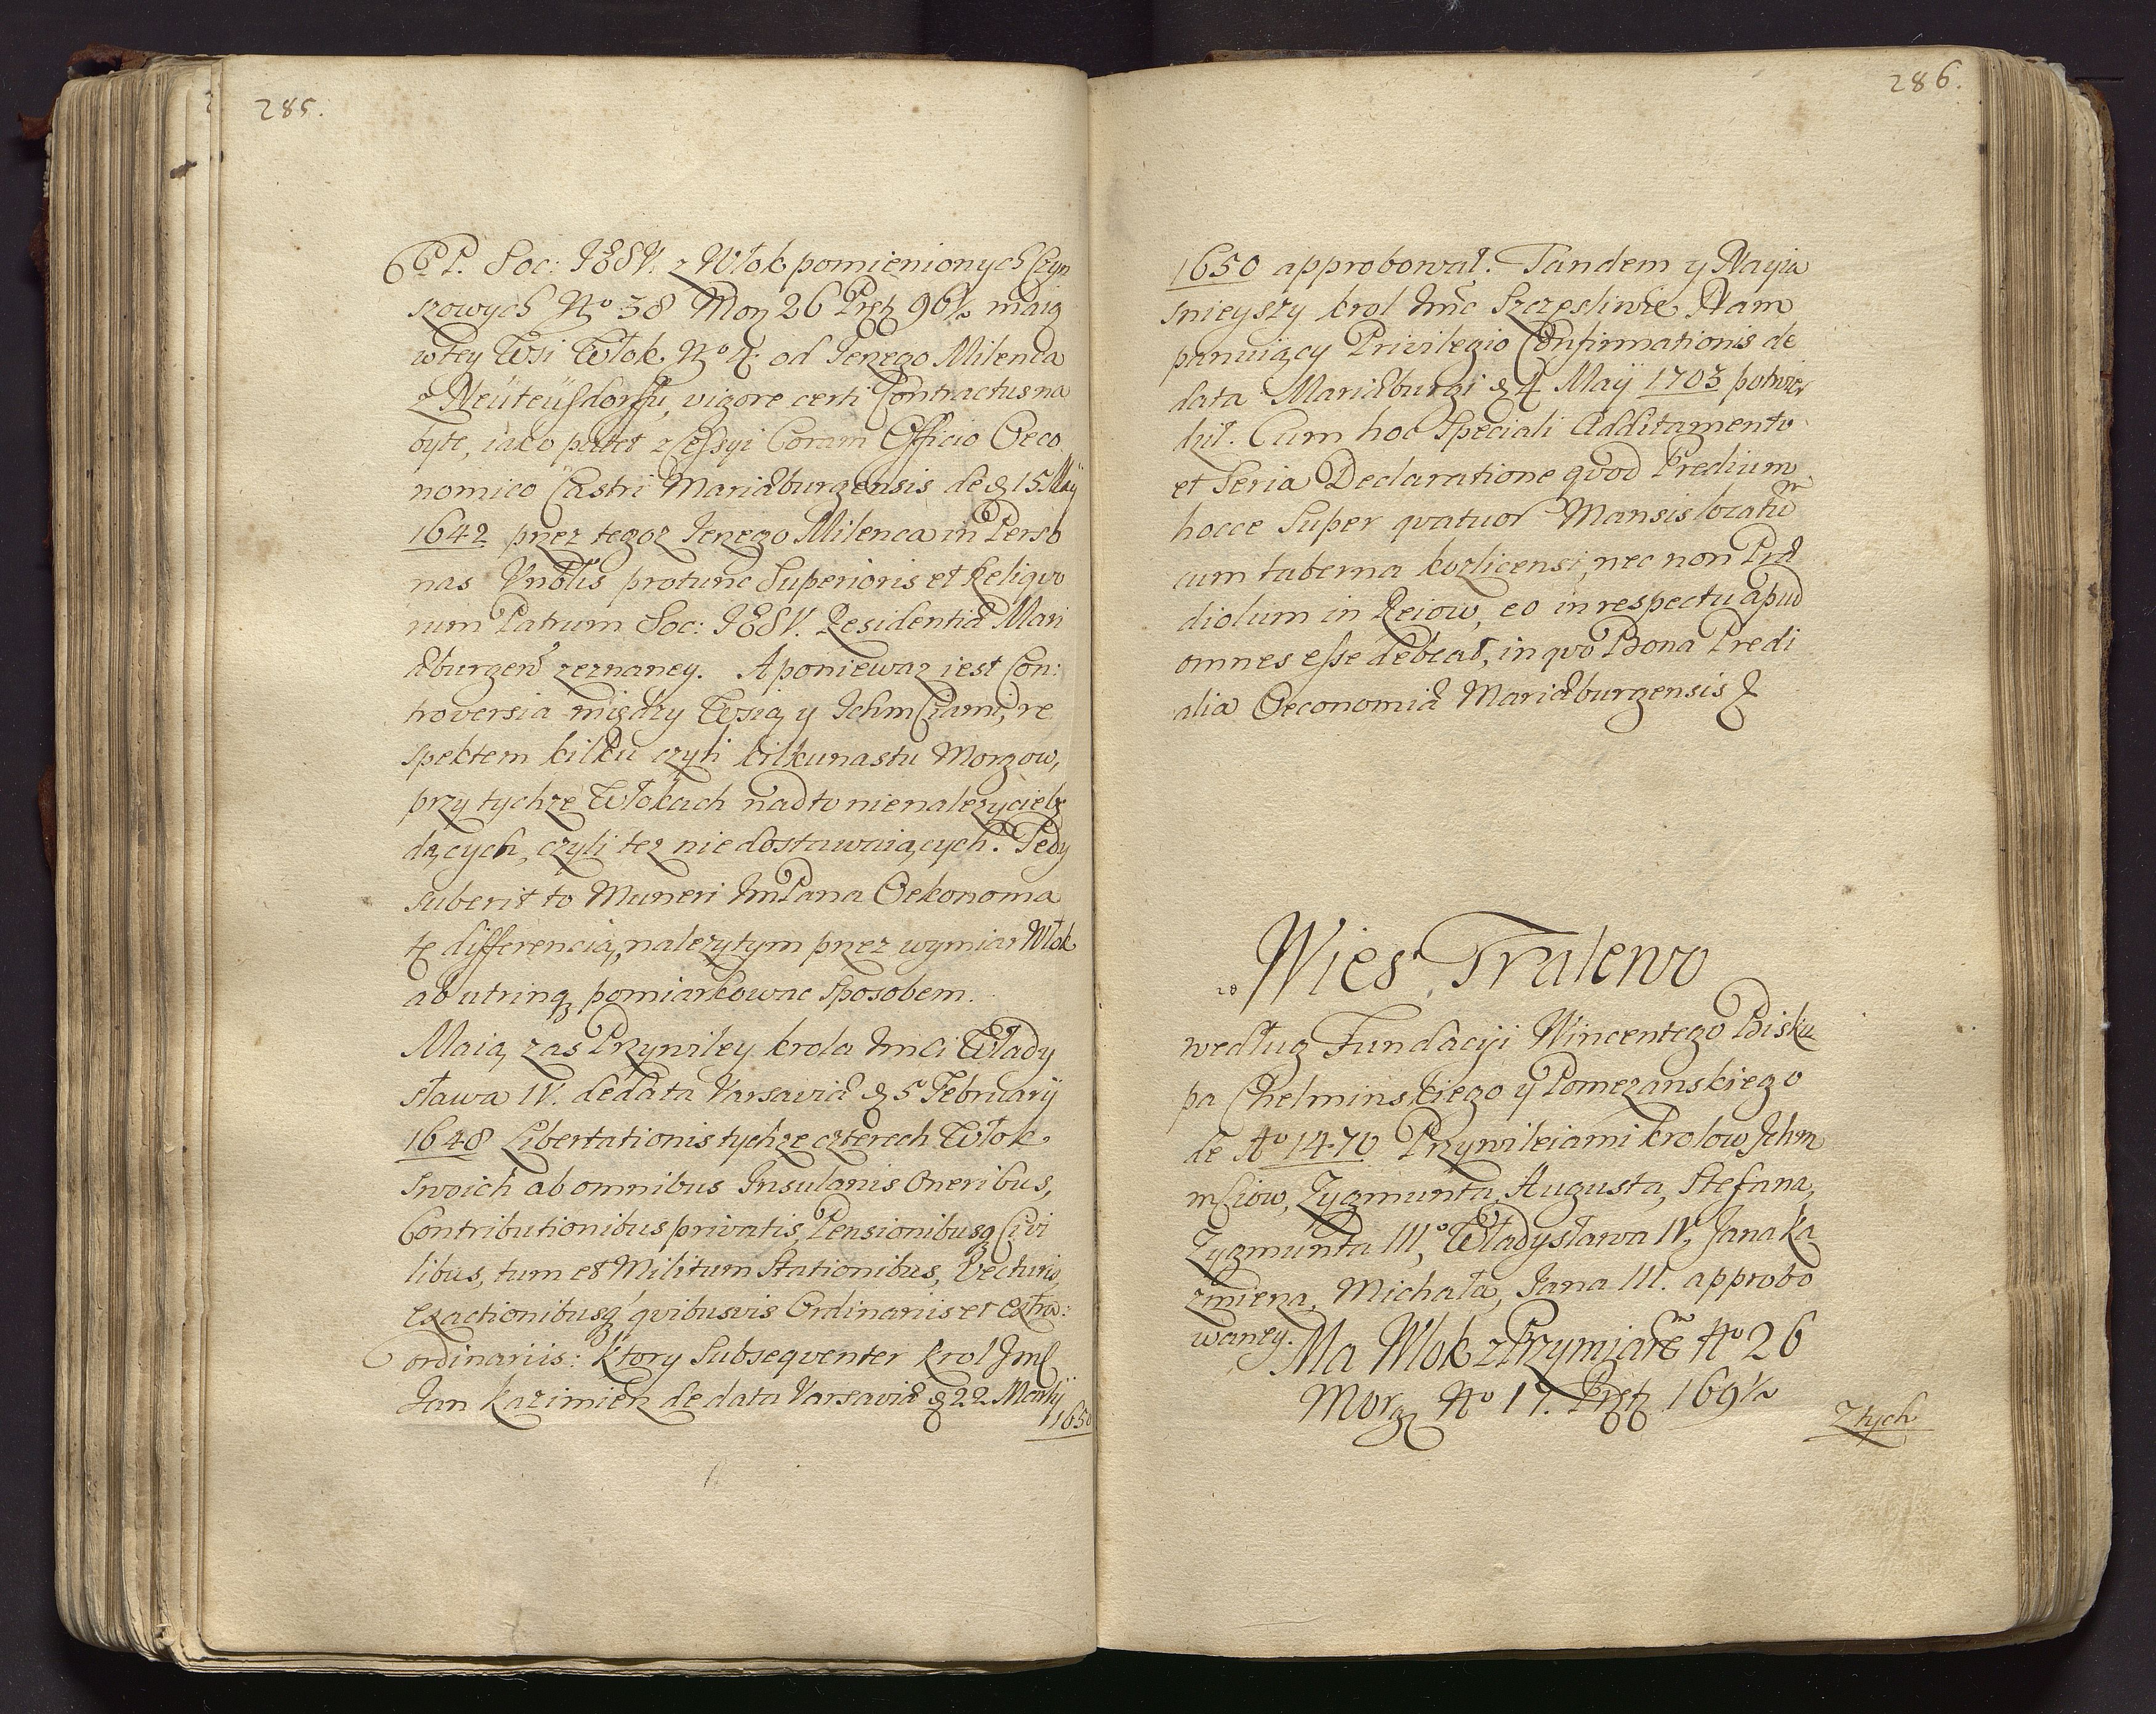 285.
6 PP. Soc: JESV. z Włok pomienionych Czyn
szowych No 38 Morg 26 Pręt 96½ maią
w tey Wsi Włok No 4. od Jerzego Milenca
z Neüteüchsdorffu, vigore certi Contractus na
byte, iako patet z Cessyi Coram Officio Oeco
nomico Castri Mariæburgensis de d 15 Maÿ
1642 przez tegoz Jerzego Milenca in Perso
nas Vnblis protunc Superioris et Reliquo
rum Patrum Soc: JESV. Residentiæ Mari
æburgens zeznaney. A poniewaz iest Con:
troversia między Wsią y Ichm Ciami, re
spektem kilku czyli kilkunastu Morgow,
przy tychze Włokach nadto nienalezycie bę
dących, czyli tez niedostawaiących. Tedy
suberit to Muneri Jm Pana Oekonoma
tę differencią, nalezytym przez wymiar Włok
ab utrinq pomiarkowac sposobem.
Maią zas Przywiley krola Jmci Włady
sława IV. de data Varsaviæ d 5 Februarÿ
1648 Libertationis tychze czterech Włok
swoich ab omnibus Insulanis Oneribus,
Contributionibus privatis, Pensionibusq Civi
libus, tum et Militum Stationibus, Vecturis,
exactionibusq quibusvis Ordinariis et Extra:
ordinariis: ktory Subsequenter krol Jmc
Jan kazimierz de data Varsaviæ d 22 Martÿ
1650
286.
1650 approbował. Tandem y Nayia
snieyszy krol Jmc Szczesliwie Nam
panuiący Privilegio Confirmationis de
data Mariæburgi d 4 Maÿ 1703 potwier
dził. Cum hoc Speciali Additamento
et Seria Declaratione quod Predium
hocce Super quatuor Mansis locatum
cum taberna kozlicensi, nec non Præ
diolum in Reiow, eo in respectu apud
omnes esse debeat, in quo Bona Predi
alia Oeconomiæ Mariæburgensis
Wies Tralewo
według Fundacyi Wincentego Bisku
pa Chelminskiego y Pomezanskiego
de Ao 1470 Przywileiami krolow Ichm
mciow, Zygmunta, Augusta, Stefana,
Zygmunta III, Władysława IV, Jana ka
zmierza, Michała, Jana III. approbo
waney. Ma Włok z Przymiarem No 26
Morg No 17. Pręt 169½
Z tych